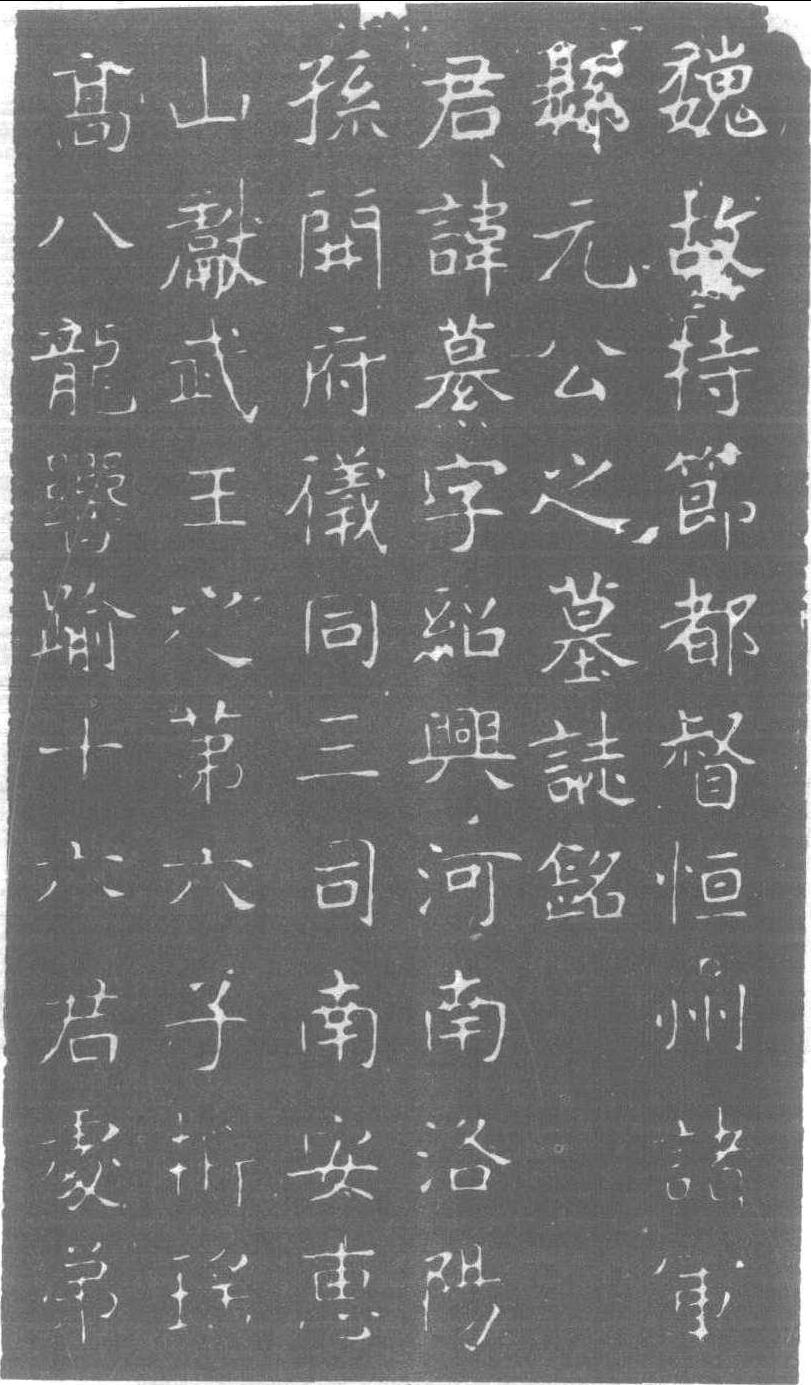 魏故持節都督恒州諸軍
縣元公之墓誌銘
君諱纂字紹興河南洛陽
孫開府儀同三司南安惠
山獻武王之第六子折瑤
高八龍響踰十六君處弟